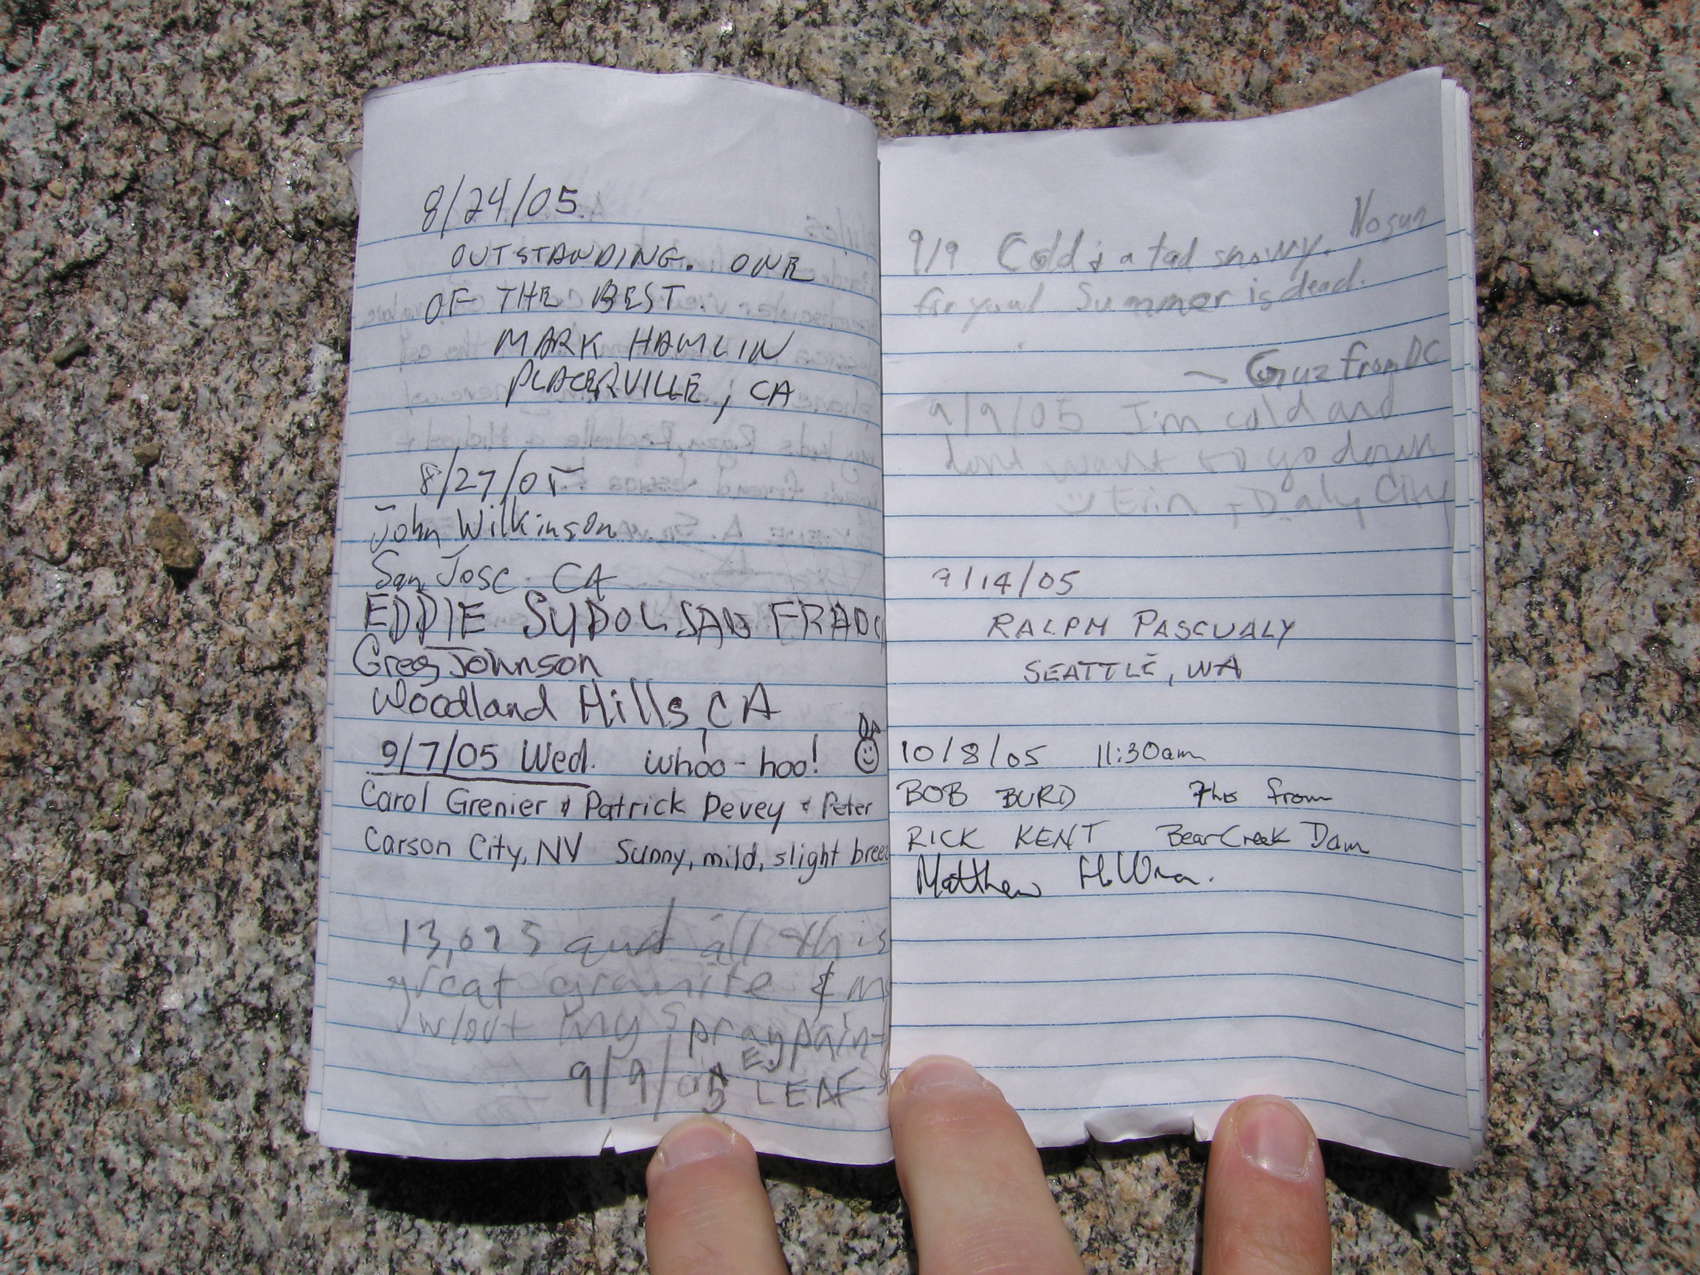 8/24/05
OUTSTANDING. ONE
OF THE BEST.
MARK HAMLIN
PLACERVILLE, CA
8/27/05
John Wilkinson
San Jose CA
EDDIE SYDOL SAN FRANC
Greg Johnson
Woodland Hills, CA
9/7/05 Wed. whoo-hoo!
Carol Grenier & Patrick Devey & Peter
Carson City, NV Sunny, mild, slight bree
13,075 and all this
great granite & m
w/out my spraypaint
EJ
9/9/05 LEAF
9/9 Cold & a tad snowy. No sun
for you! Summer is dead.
— Guz from DC
9/9/05 I'm cold and
dont want to go down
Erin, Daly City
9/14/05
RALPH PASCUALY
SEATTLE, WA
10/8/05 11:30am
BOB BURD 7hrs from
RICK KENT Bear Creek Dam
Matthew